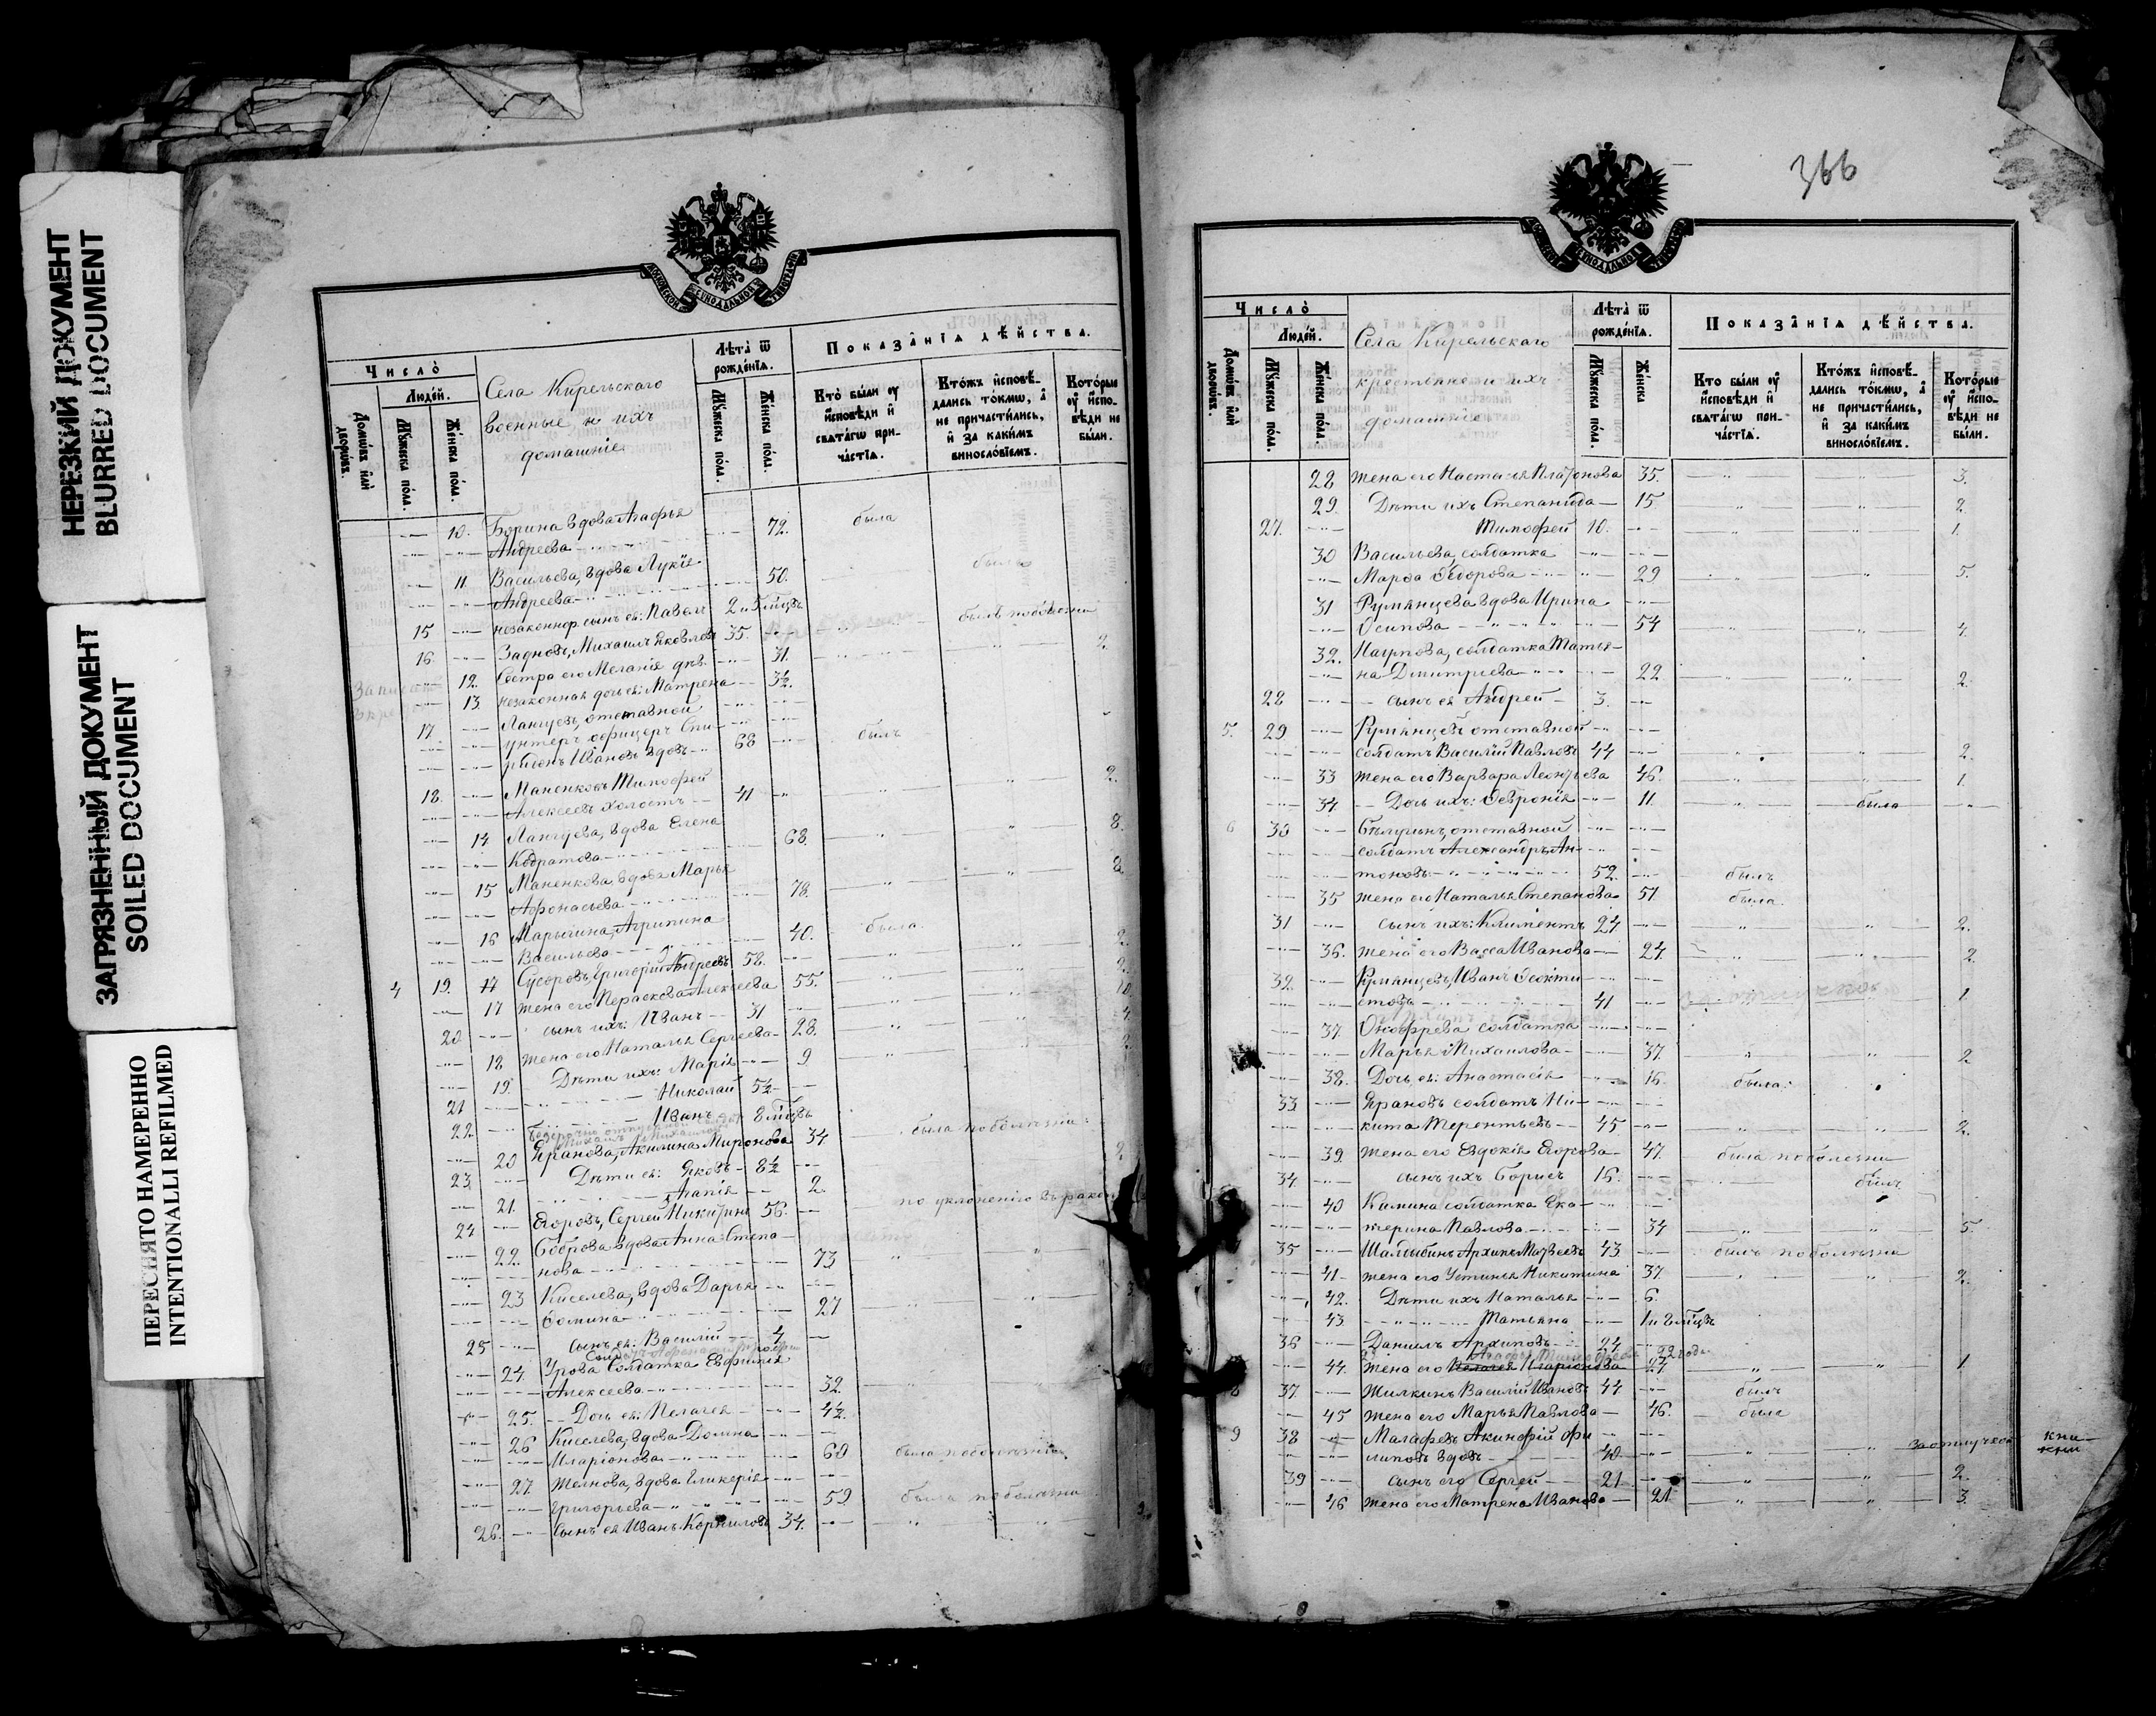 НЕРЕЗКИЙ ДОКУМЕНТ
BLURRED DOCUMENT
ЗАГРЯЗНЕННЫЙ ДОКУМЕНТ
SOILED DOCUMENT
ПЕРЕСНЯТО НАМЕРЕННО
INTENTIONALLI REFILMED
МОСКОВСКОЙ СѴНОДАЛЬНОЙ ТИПОГРАФІИ
Число̀
Людей.
Домовъ или дворовъ.
Мужеска пола.
Женска пола.
Села Кирельскаго
военные и ихъ
домашніе
Лѣта ѿ рожденїѧ.
Мужеска пола.
Женска пола.
Показанїѧ дѣйства.
Кто были оу исповѣди и свѧтагѡ причастїѧ.
Ктожъ исповѣдались токмѡ, а не причастились, и за какимъ винословїемъ.
Которые оу исповѣди не были.
10. Борина вдова Агафья
Андреева 72. была
11 Васильева, вдова Лукія
Андреева 50. была
15 незаконнор. сынъ ея: Павелъ 2 и 5 мцвъ
16. Заднов, Михаилъ Яковлевъ 35. былъ по болезни
12. Сестра его Меланія дѣв. 31. 2.
13. незаконная дочь ея: Матрена 3½.
17. Лангуевъ, отставной
унтеръ офицеръ Спи-
ридонъ Ивановъ вдовъ 68 былъ
18. Маненковъ Тимофей
Алексеевъ холостъ 41 2.
14 Лангуева, вдова Елена
Кодратова 68. 8.
15 Маненкова, вдова Марья
Афонасьева 78. 8
16 Марыгина, Агрипина
Васильева 40. была
4 19. Сусоровъ, Григорій Андреевъ 58. 2.
17 жена его Пераскова Алексеева 55. 2.
20 сынъ ихъ: Иванъ 31 10.
18 жена его Наталья Сергеева 28. 4.
19. Дѣти ихъ: Марія 9 2.
21 Николай 5½
22. Иванъ 8 мцвъ
20 Яранова, Акилина Миронова 34 была по болѣзни
23. Дѣти ея: Яковъ 8½
21. Агапія 2.
24 Егоровъ, Сергей Никитинъ 56. по уклоненію въ раско
22. Боброва вдова Анна Степа-
нова 73
23 Киселева, вдова Дарья
Фомина 27
25 сынъ ея: Василій 4
24 Урова Солдатка Евфимія
Алексеева 32.
25. Дочь ея: Пелагея 4½.
26 Киселева, вдова Домна
Иларіонова 60 была по болѣзни
27. Желнова, вдова Гликерія
Григорьева 59 была по болѣзни
26. Сынъ ея Иванъ Корниловъ 34.
366
МОСКОВСКОЙ СѴНОДАЛЬНОЙ ТИПОГРАФІИ
Число̀
Людей.
Домовъ или дворовъ.
Мужеска пола.
Женска пола.
Села Кирельскаго
крестьяне и ихъ
домашніе
Лѣта ѿ рожденїѧ.
Мужеска пола.
Женска
Показанїѧ дѣйства.
Кто были оу исповѣди и свѧтагѡ причастїѧ.
Ктожъ исповѣдались токмѡ, а не причастились, и за какимъ винословїемъ.
Которые оу исповѣди не были.
28 жена его Настасья Платонова 35. 3.
29. Дѣти ихъ Степанида 15 2
27. Тимофей 10. 1.
30 Васильева, солдатка
Марфа Ѳедорова 29 5.
31 Румянцева вдова Ирина
Осипова 54 4.
32. Наумова, солдатка Татья-
на Дмитриева 22 2.
28 сынъ ея Андрей 3.
5. 29 Румянцевъ отставной
солдатъ Василій Павловъ 44 2.
33 жена его Варвара Леонтьева 46. 1.
34 Дочь ихъ: Февронія 11. была
6 30 Бѣлугинъ, отставной
солдатъ Александръ Ан-
тоновъ 52. былъ
35 жена его Наталья Степанова 51 была.
31 сынъ ихъ: Климентъ 24 2.
36. жена его Васса Иванова 24. 2.
32. Румянцевъ, Иванъ Феокти-
стовъ 41 1
37. Онофрева солдатка
Марья Михаилова 37. 2
38. Дочь ея: Анастасія 16. была.
33 Ярановъ солдатъ Ни-
кита Терентьевъ 45 2.
39. жена его Евдокія Егорова 47. была по болезни
34. сынъ ихъ Борисъ 16. былъ
40 Камина солдатка Ека-
терина Павлова 34 5.
35 Шалыбинъ Архипъ Матвеевъ 43 былъ по болѣзни
41 жена его Устинья Никитина 37. 2.
42. Дѣти ихъ Наталья 6.
43 Татьяна 1 и 8 мцвъ
36 Данилъ Архиповъ 24
44. жена его Пелагея Иларіонова 27 22 года. 1
8 37. Жилкинъ Василій Ивановъ 44 былъ
45 жена его Марья Павлова 46. была
9 38 Малафеевъ Акинфій Фи-
липовъ вдовъ 40. за отлучкою
39 сынъ его Сергей 21 2.
46 жена его Матрена Иванова 21 3.